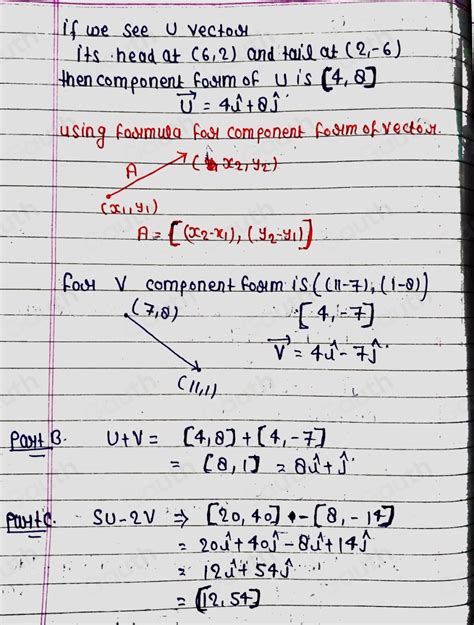 if we see U vector
its head at (6,2) and tail at (2,-6)
then component form of U is [4, 8]
U = 4î+8ĵ
using formula for component form of vector.
A
(x2, y2)
(x1, y1)
A = [(x2-x1), (y2-y1)]
for V component form is ((11-7), (1-8))
(7,8)
[4, -7]
V = 4î - 7ĵ
(11,1)
Part B. U+V = [4,8] + [4,-7]
= [8,1] = 8î+ĵ
Part C. 5U-2V ⇒ [20, 40] - [8, -14]
= 20î+40ĵ-8î+14ĵ
= 12î+54ĵ
= [12, 54]